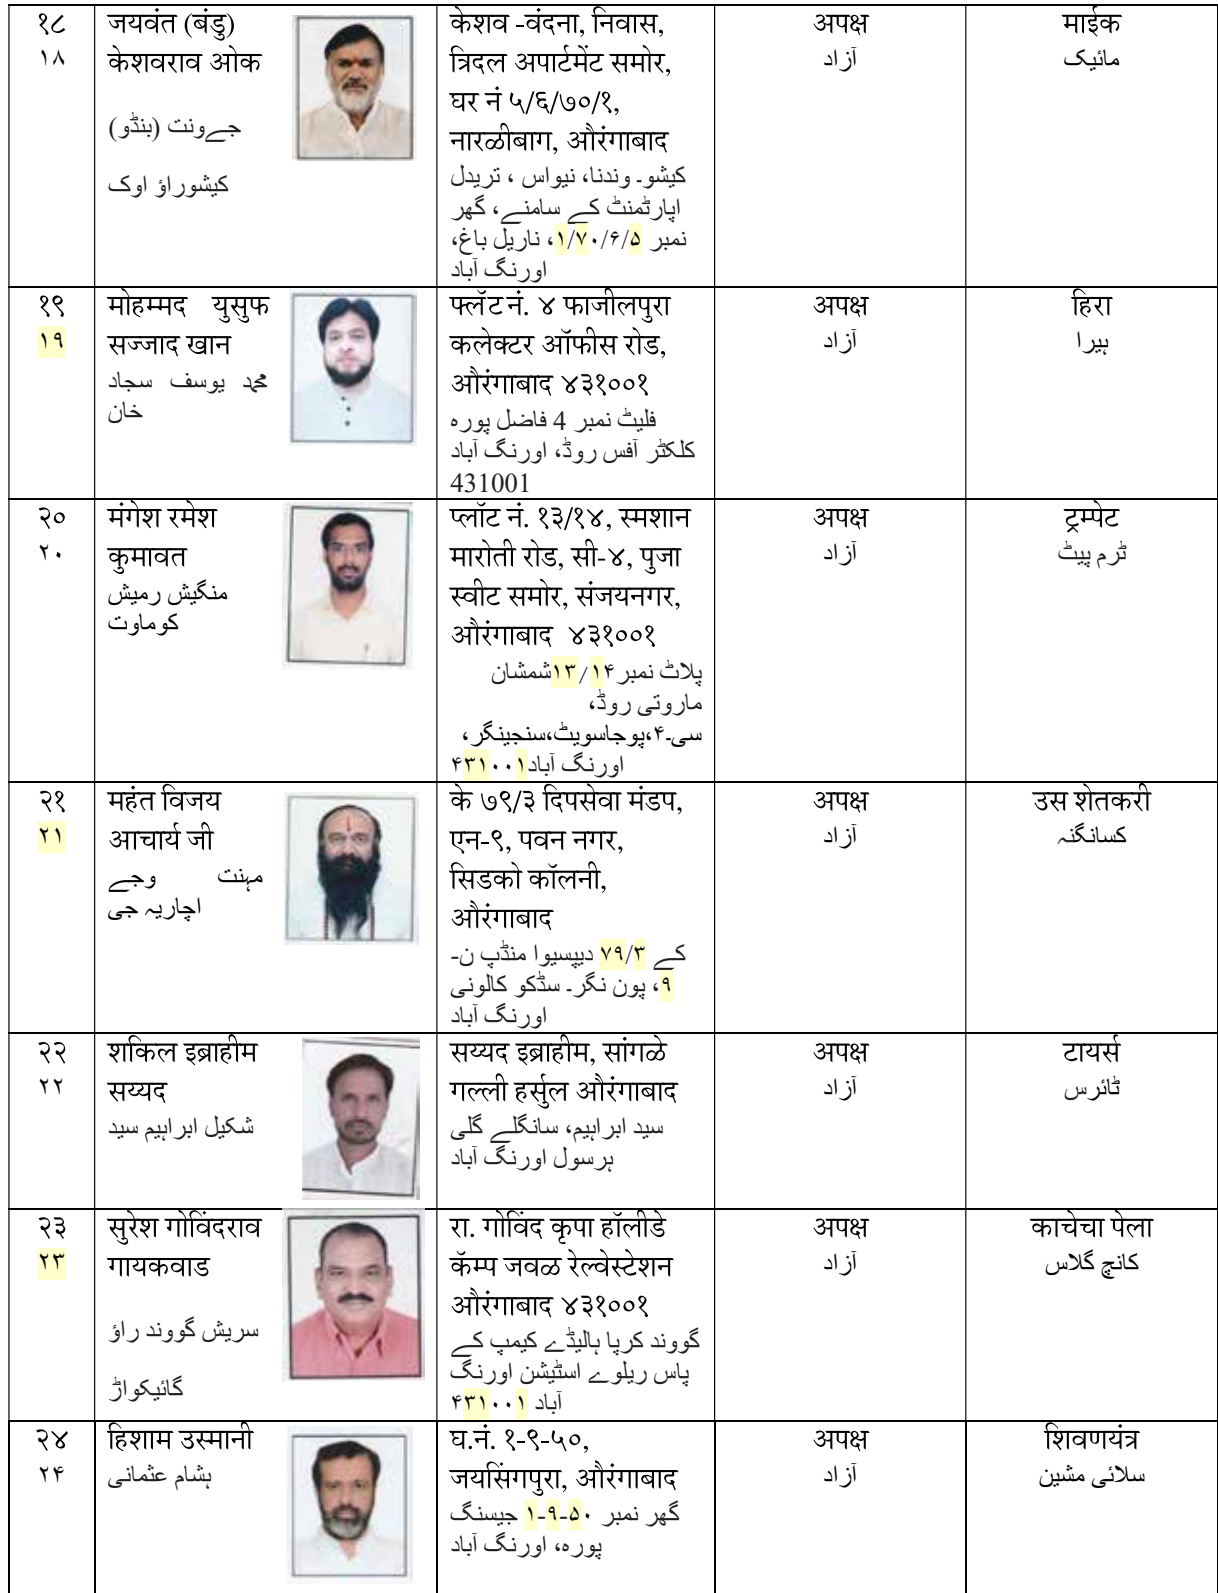 १८
۱۸
जयवंत (बंडु)
केशवराव ओक
جےونت (بنڈو)
کیشوراؤ اوک
केशव -वंदना, निवास,
त्रिदल अपार्टमेंट समोर,
घर नं ५/६/७०/१,
नारळीबाग, औरंगाबाद
کیشو۔ وندنا، نیواس ، تریدل
اپارٹمنٹ کے سامنے، گھر
نمبر ۱/۷۰/۶/۵، ناریل باغ،
اورنگ آباد
अपक्ष
آزاد
माईक
مائیک
१९
۱۹
मोहम्मद युसुफ
सज्जाद खान
محمد یوسف سجاد
خان
फ्लॅट नं. ४ फाजीलपुरा
कलेक्टर ऑफीस रोड,
औरंगाबाद ४३१००१
فلیٹ نمبر 4 فاضل پورہ
کلکٹر آفس روڈ، اورنگ آباد
431001
अपक्ष
آزاد
हिरा
ہیرا
२०
۲۰
मंगेश रमेश
कुमावत
منگیش رمیش
کوماوت
प्लॉट नं. १३/१४, स्मशान
मारोती रोड, सी-४, पुजा
स्वीट समोर, संजयनगर,
औरंगाबाद ४३१००१
پلاٹ نمبر ۱۳/۱۴شمشان
ماروتی روڈ،
سی۔۴،پوجاسویٹ،سنجینگر،
اورنگ آباد۴۳۱۰۰۱
अपक्ष
آزاد
ट्रम्पेट
ٹرم پیٹ
२१
۲۱
महंत विजय
आचार्य जी
مہنت وجے
اچاریہ جی
के ७९/३ दिपसेवा मंडप,
एन-९, पवन नगर,
सिडको कॉलनी,
औरंगाबाद
کے ۷۹/۳ دیپسیوا منڈپ ن-
۹، پون نگر۔ سڈکو کالونی
اورنگ آباد
अपक्ष
آزاد
उस शेतकरी
کسانگنہ
२२
۲۲
शकिल इब्राहीम
सय्यद
شکیل ابراہیم سید
सय्यद इब्राहीम, सांगळे
गल्ली हर्सुल औरंगाबाद
سید ابراہیم، سانگلے گلی
ہرسول اورنگ آباد
अपक्ष
آزاد
टायर्स
ٹائرس
२३
۲۳
सुरेश गोविंदराव
गायकवाड
سریش گووند راؤ
گائیکواڑ
रा. गोविंद कृपा हॉलीडे
कॅम्प जवळ रेल्वेस्टेशन
औरंगाबाद ४३१००१
گووند کرپا ہالیڈے کیمپ کے
پاس ریلوے اسٹیشن اورنگ
آباد ۴۳۱۰۰۱
अपक्ष
آزاد
काचेचा पेला
کانچ گلاس
२४
۲۴
हिशाम उस्मानी
ہشام عثمانی
घ.नं. १-९-५०,
जयसिंगपुरा, औरंगाबाद
گھر نمبر ۱-۹-۵۰ جیسنگ
پورہ، اورنگ آباد
अपक्ष
آزاد
शिवणयंत्र
سلائی مشین